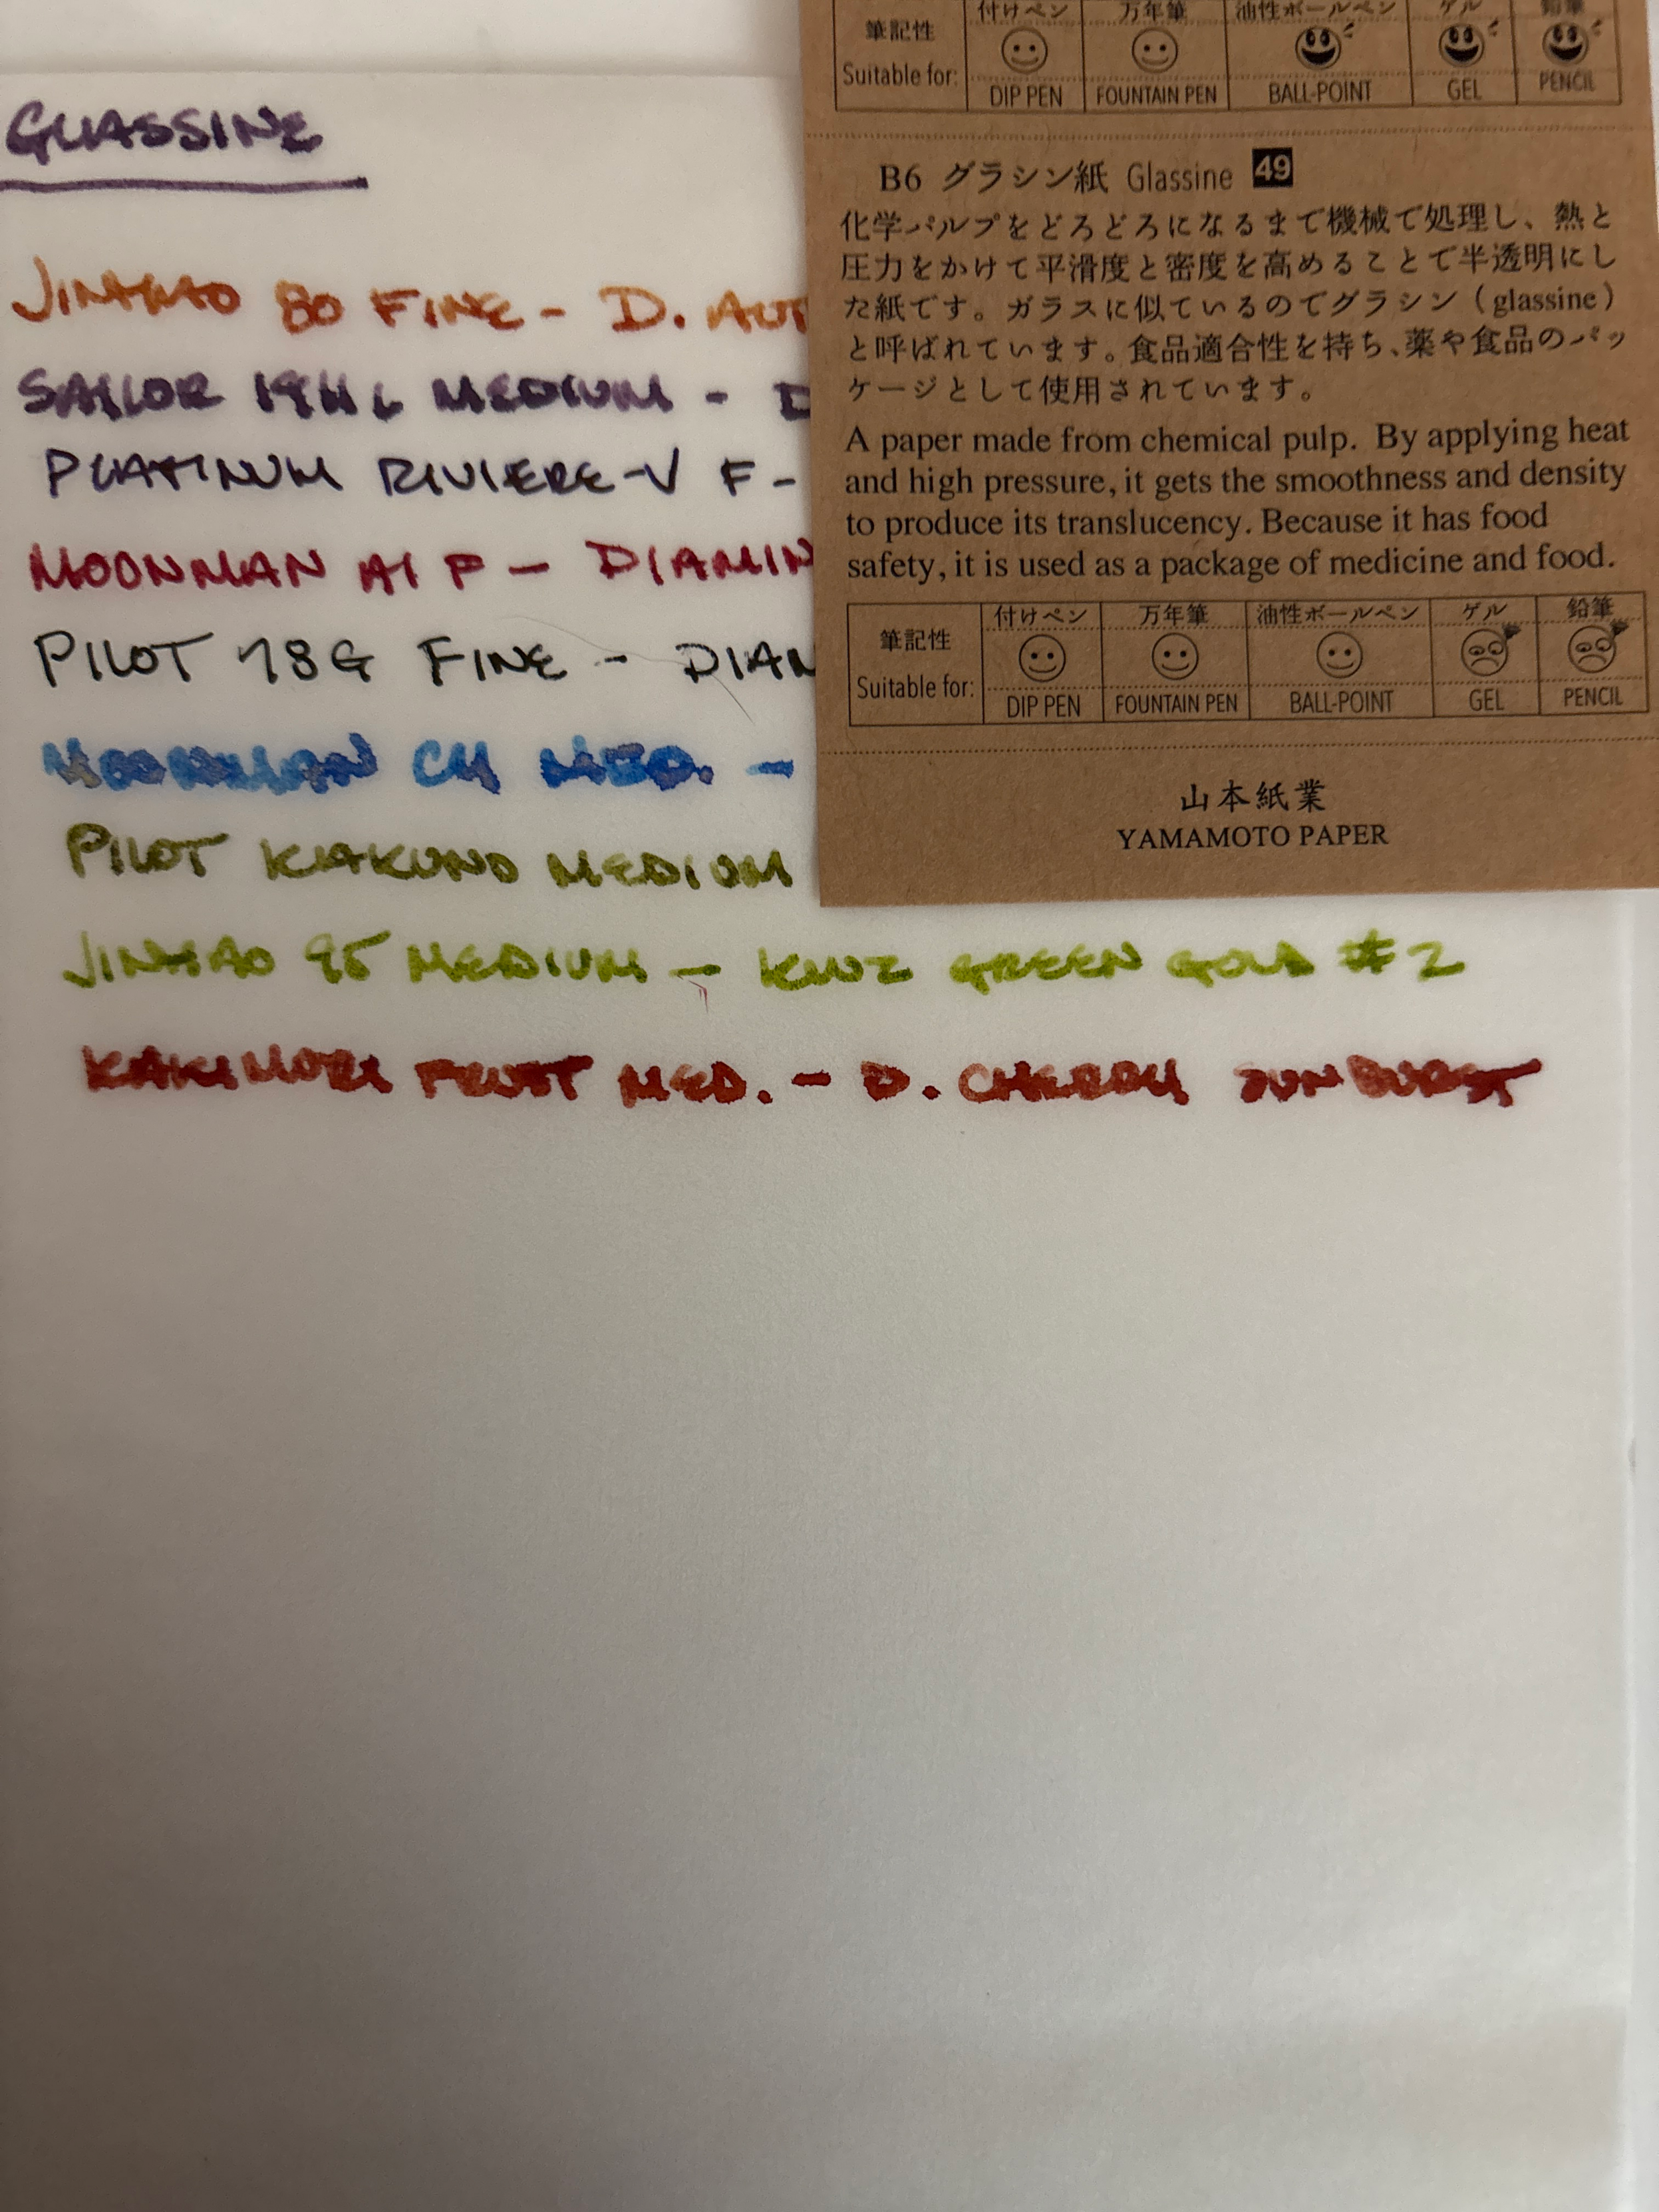 GLASSINE
JINHAO 80 FINE - D. AUT
SAILOR 1911 L MEDIUM - D
PLATINUM RIVIERE-V F -
MOONMAN A1 F - DIAMIN
PILOT 78G FINE - DIAM
MOONMAN C1 MED. -
PILOT KAKUNO MEDIUM
JINHAO 95 MEDIUM - KWZ GREEN GOLD #2
KAKIMORI FROST MED. - D. CHERRY SUNBURST
筆記性 付けペン 万年筆 油性ボールペン ゲル 鉛筆
Suitable for: DIP PEN FOUNTAIN PEN BALL-POINT GEL PENCIL
B6 グラシン紙 Glassine 49
化学パルプをどろどろになるまで機械で処理し、熱と
圧力をかけて平滑度と密度を高めることで半透明にし
た紙です。ガラスに似ているのでグラシン（glassine）
と呼ばれています。食品適合性を持ち、薬や食品のパッ
ケージとして使用されています。
A paper made from chemical pulp. By applying heat
and high pressure, it gets the smoothness and density
to produce its translucency. Because it has food
safety, it is used as a package of medicine and food.
筆記性 付けペン 万年筆 油性ボールペン ゲル 鉛筆
Suitable for: DIP PEN FOUNTAIN PEN BALL-POINT GEL PENCIL
山本紙業
YAMAMOTO PAPER